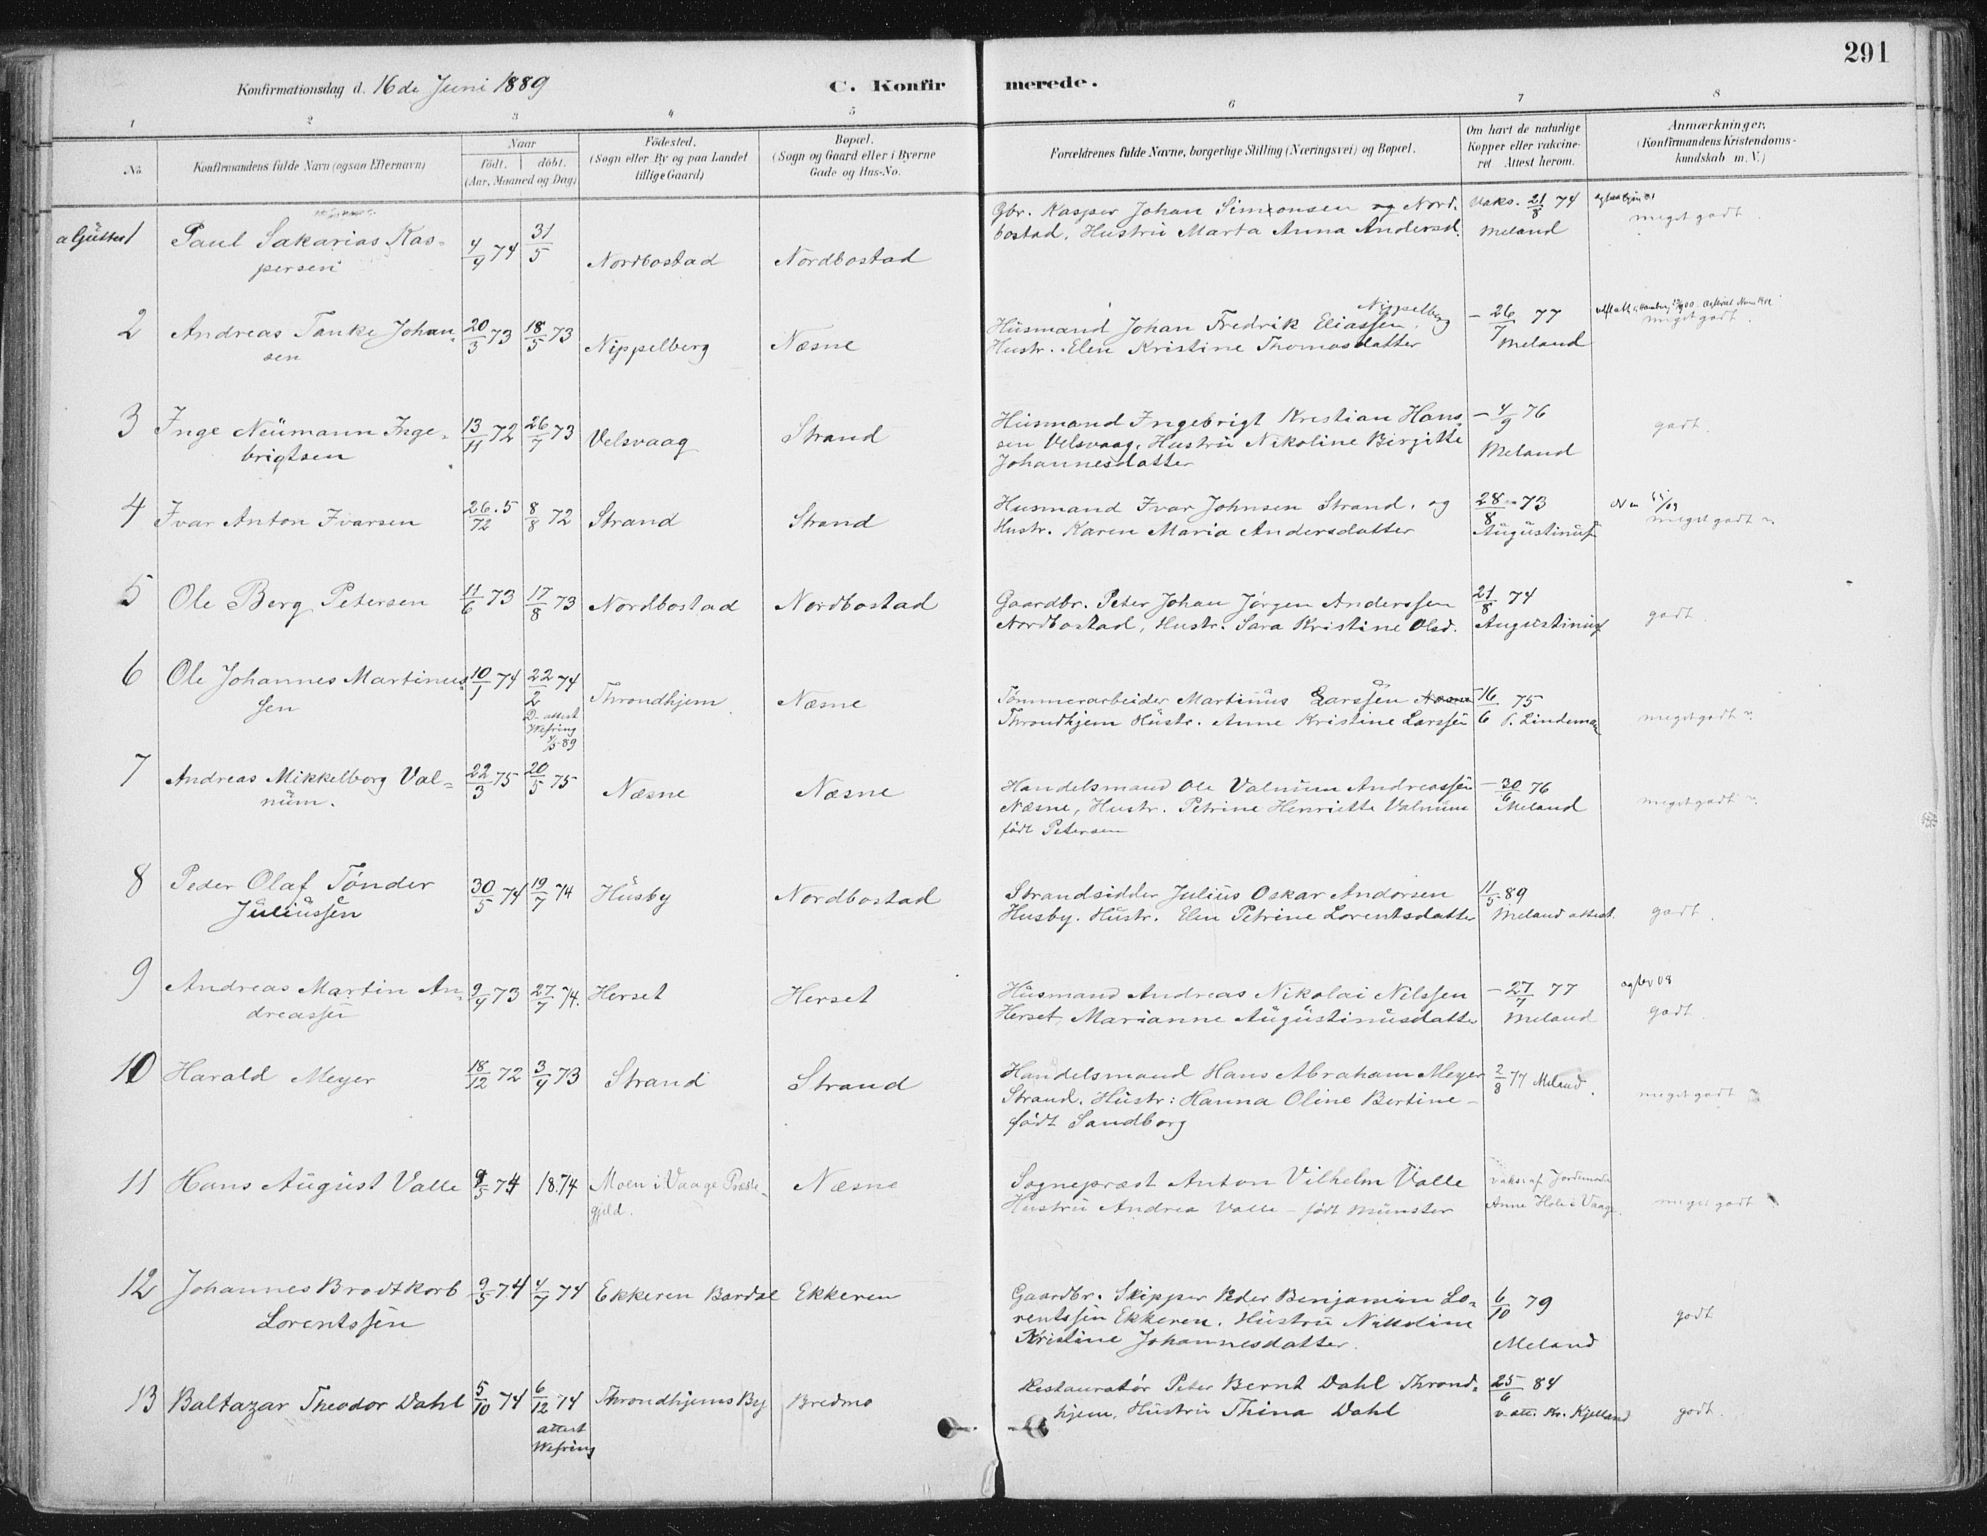 291
Konfirmationsdag d. 16de Juni 1889
C. Konfirmerede.
1 2 3 4 5 6 7 8
No
Konfirmandens fulde Navn (ogsaa Efternavn)
Naar
født. døbt.
(Aar, Maaned og Dag)
Fødested.
(Sogn eller By og paa Landet
tillige Gaard)
Bopæl.
(Sogn og Gaard eller i Byerne
Gade og Hus-No.
Forældrenes fulde Navne, borgerlige Stilling (Næringsvei) og Bopæl.
Om havt de naturlige
Kopper eller vakcine-
ret. Attest herom.
Anmærkninger.
(Konfirmandens Kristendoms-
kundskab m. V.)
a Gutter
1 Paul Sakarias Kas- 4/9 74 31/5 Nordbostad Nordbostad
persen
Gbr. Kasper Johan Simonsen og Nord- Vaks. 21/8 74
bostad, Hustru Marta Anna Andersd. Meland meget godt.
2 Andreas Tanke Johan- 20/3 73 18/5 73 Nippelberg Næsne
sen
Nippelberg
Husmand Johan Fredrik Eliassen, - 26/7 77 meget godt.
Hustr. Elen Kristine Thomasdatter Meland
3 Inge Neumann Inge- 13/11 72 26/7 73 Velsvaag Strand
brigtsen
Husmand Ingebrigt Kristian Han- - 4/9 76 godt.
sen Velsvaag, Hustru Nikoline Birgitte Meland
Johannesdatter
4 Ivar Anton Ivarsen 26.5/72 8/8 72 Strand Strand
Husmand Ivar Johnsen Strand, og 28/8 73
Hustr. Karen Maria Andersdatter Augustinus meget godt
5 Ole Berg Petersen 11/6 73 17/8 73 Nordbostad Nordbostad
Gaardbr. Peter Johan Jørgen Anderssen 21/8 74 godt.
Nordbostad, Hustr. Sara Kristine Olsd. Augustinus
6 Ole Johannes Martinus- 10/1 74 22/2 74 Throndhjem Næsne
sen
D. attest
Wefring
89
Tømmerarbeider Martinus Larssen 16/6 75
Throndhjem Hustr. Anne Kristine Larssen Lindeman meget godt
7 Andreas Mikkelborg Val- 22/3 75 20/5 75 Næsne Næsne
num.
Handelsmand Ole Valnum Andreassen - 30/6 76
Næsne, Hustr. Petrine Henriette Valnum Meland meget godt
født Petersen
8 Peder Olaf Tønder 30/5 74 19/7 74 Husby Nordbostad
Juliussen
Strandsidder Julius Oskar Andersen 11/5 89
Husby. Hustr. Elen Petrine Lorentsdatter Meland attest. godt.
9 Andreas Martin An- 9/9 73 27/7 74. Herset Herset
dreassen
Husmand Andreas Nikolai Nilssen - 27/7 77
Herset, Marianne Augustinusdatter Meland godt.
10 Harald Meyer 18/12 72 3/9 73 Strand Strand
Handelsmand Hans Abraham Meyer 2/8 77 Meland.
Strand. Hustr: Hanna Oline Bertine - meget godt
født Sandborg
11 Hans August Valle 9/5 74 18.74 Moen i Vaage Præste- Næsne
gjeld.
Sognepræst Anton Vilhelm Valle vaks. af Jordemoder
Hustru Andrea Valle - født Münster Anne Hole i Vaage. meget godt
12 Johannes Brodtkorb 9/5 74 4/7 74 Ekkeren Bardal Ekkeren
Lorentssen
Gaardbr. Skipper Peder Benjamin Lo- 6/10 79 godt
rentssen Ekkeren. Hustru Nikoline
Kristine Johannesdatter. Meland
13 Baltazar Theodor Dahl 5/10 74 6/12 74 Throndhjems By Bredmo
attest
Wefring
Restauratør Peter Bernt Dahl Thrond- 25/6 84
hjem, Hustru Thina Dahl v. att. Kr. Kjelland godt.